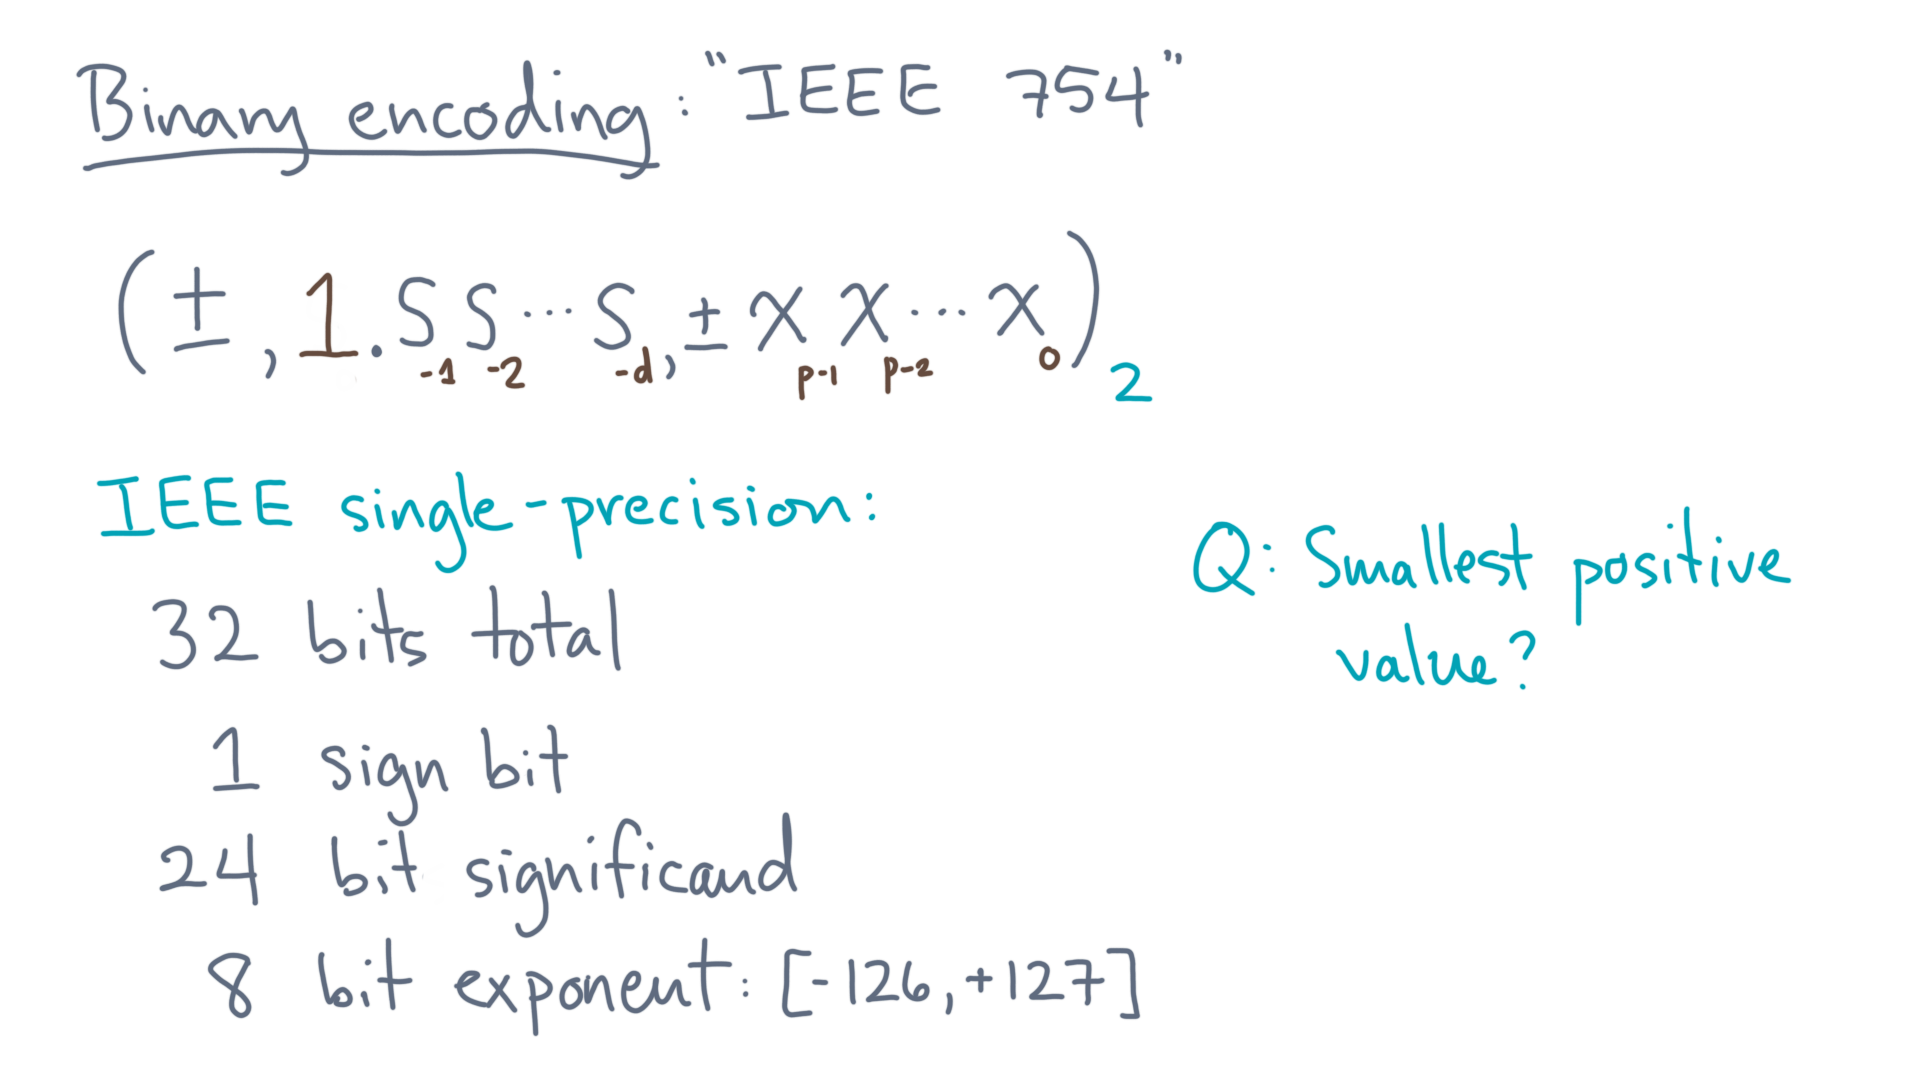 Binary encoding: "IEEE 754"
(±, 1.SS...S, ±XX...X)2
-1 -2 -d p-1 p-2 0
IEEE single-precision:
32 bits total
1 sign bit
24 bit significand
8 bit exponent: [-126, +127]
Q: Smallest positive
value?